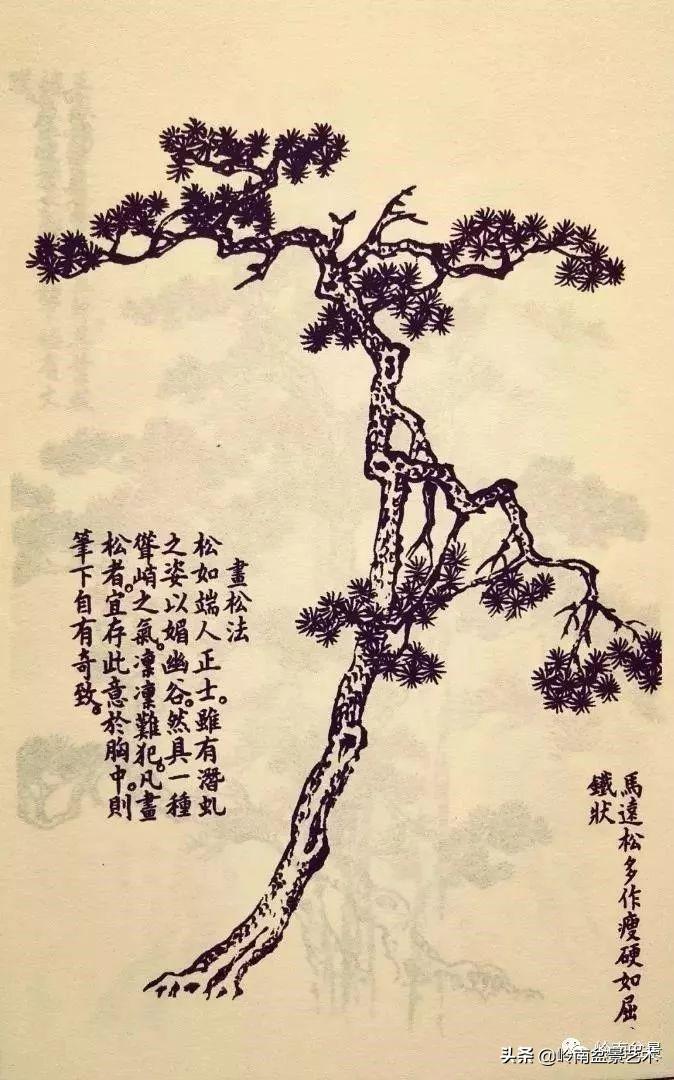 畫松法
松如端人正士。雖有潛虬
之姿以媚幽谷。然具一種
聳峭之氣。凜凜難犯。凡畫
松者。宜存此意於胸中。則
筆下自有奇致。
馬遠松多作瘦硬如屈
鐵狀
岭南盆景
头条 @岭南盆景艺术